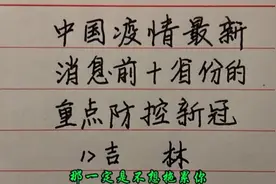 中国疫情最新
消息前十省份的
重点防控新冠
1>吉 林
那一定是不想拖累你